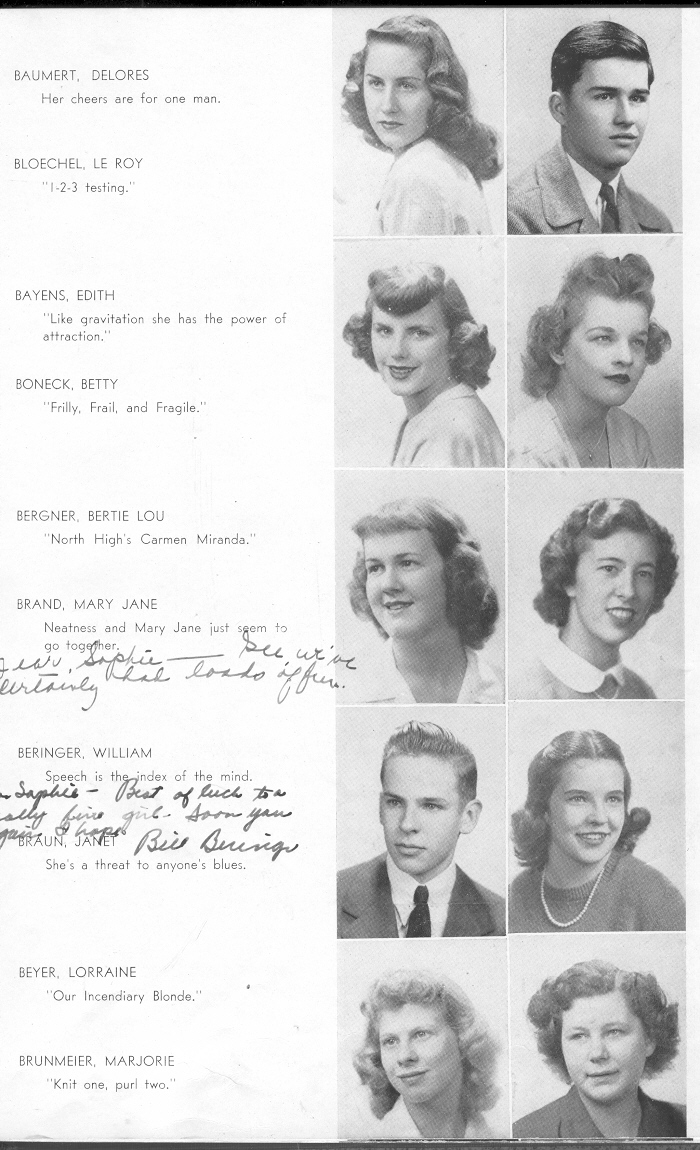 BAUMERT, DELORES
Her cheers are for one man.
BLOECHEL, LE ROY
"1-2-3 testing."
BAYENS, EDITH
"Like gravitation she has the power of
attraction."
BONECK, BETTY
"Frilly, Frail, and Fragile."
BERGNER, BERTIE LOU
"North High's Carmen Miranda."
BRAND, MARY JANE
Neatness and Mary Jane just seem to
go together.
Sophie — See we've
certainly had loads of fun.
BERINGER, WILLIAM
Speech is the index of the mind.
Sophie – Best of luck to a
fine girl. Soon you
I hope.
BRAUN, JANET
Bill Beringer
She's a threat to anyone's blues.
BEYER, LORRAINE
"Our Incendiary Blonde."
BRUNMEIER, MARJORIE
"Knit one, purl two."